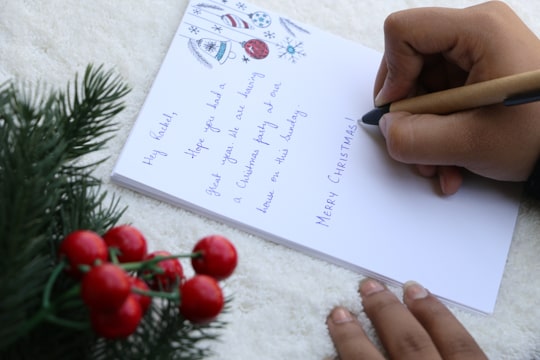 Hey Rachel,
Hope you had a
great year. We are having
a Christmas party at our
house on this Sunday.
MERRY CHRISTMAS!